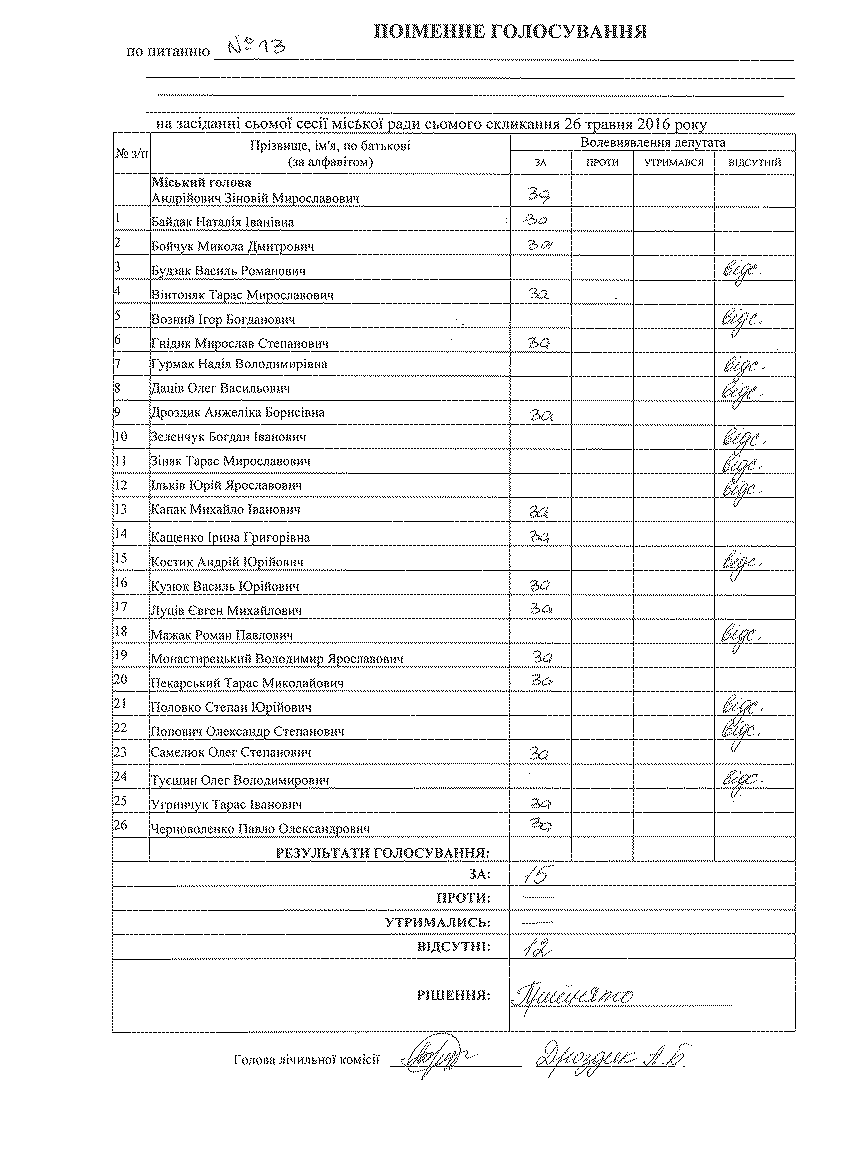 ПОІМЕННЕ ГОЛОСУВАННЯ
по питанню №13
на засіданні сьомої сесії міської ради сьомого скликання 26 травня 2016 року
№ з/п Прізвище, ім'я, по батькові (за алфавітом) Волевиявлення депутата
ЗА ПРОТИ УТРИМАВСЯ ВІДСУТНІЙ
Міський голова
Андрійович Зіновій Мирославович за
1 Байдак Наталія Іванівна за
2 Бойчук Микола Дмитрович за
3 Будзак Василь Романович відс.
4 Вінтоняк Тарас Мирославович за
5 Возний Ігор Богданович відс.
6 Гнідик Мирослав Степанович за
7 Гурмак Надія Володимирівна відс.
8 Даців Олег Васильович відс.
9 Дроздик Анжеліка Борисівна за
10 Зеленчук Богдан Іванович відс.
11 Зіняк Тарас Мирославович відс.
12 Ільків Юрій Ярославович відс.
13 Капак Михайло Іванович за
14 Кащенко Ірина Григорівна за
15 Костик Андрій Юрійович відс.
16 Кузюк Василь Юрійович за
17 Луців Євген Михайлович за
18 Мажак Роман Павлович відс.
19 Монастирецький Володимир Ярославович за
20 Пекарський Тарас Миколайович за
21 Половко Степан Юрійович відс.
22 Попович Олександр Степанович відс.
23 Самелюк Олег Степанович за
24 Туєшин Олег Володимирович відс.
25 Угринчук Тарас Іванович за
26 Черноволенко Павло Олександрович за
РЕЗУЛЬТАТИ ГОЛОСУВАННЯ:
ЗА: 15
ПРОТИ: —
УТРИМАЛИСЬ: —
ВІДСУТНІ: 12
РІШЕННЯ: Прийнято
Голова лічильної комісії Дроздик А.Б.